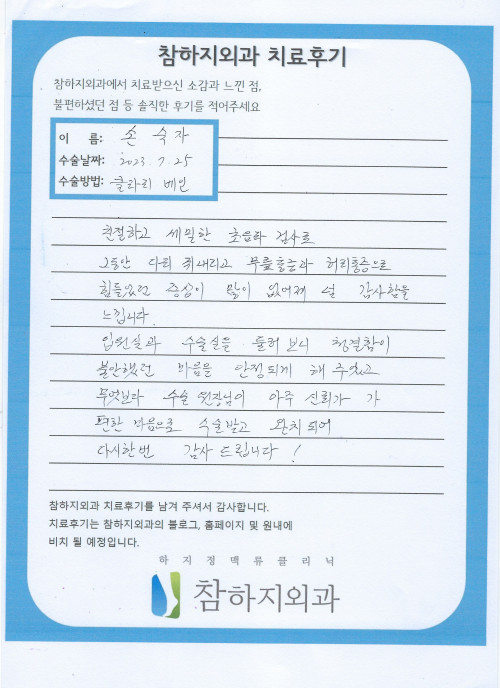 참하지외과 치료후기
참하지외과에서 치료받으신 소감과 느낀 점,
불편하셨던 점 등 솔직한 후기를 적어주세요
이 름: 손 숙자
수술날짜: 2023. 7. 25
수술방법: 클라리 베인
친절하고 세밀한 초음파 검사로
그동안 다리 쥐내리고 무릎통증과 허리통증으로
힘들었던 증상이 많이 없어져 넘 감사함을
느낍니다.
입원실과 수술실을 둘러 보니 청결함이
불안했던 마음을 안정되게 해 주었고
무엇보다 수술 원장님이 아주 신뢰가 가
편한 마음으로 수술받고 완치 되어
다시한번 감사 드립니다 !
참하지외과 치료후기를 남겨 주셔서 감사합니다.
치료후기는 참하지외과의 블로그, 홈페이지 및 원내에
비치 될 예정입니다.
하지정맥류클리닉
참하지외과